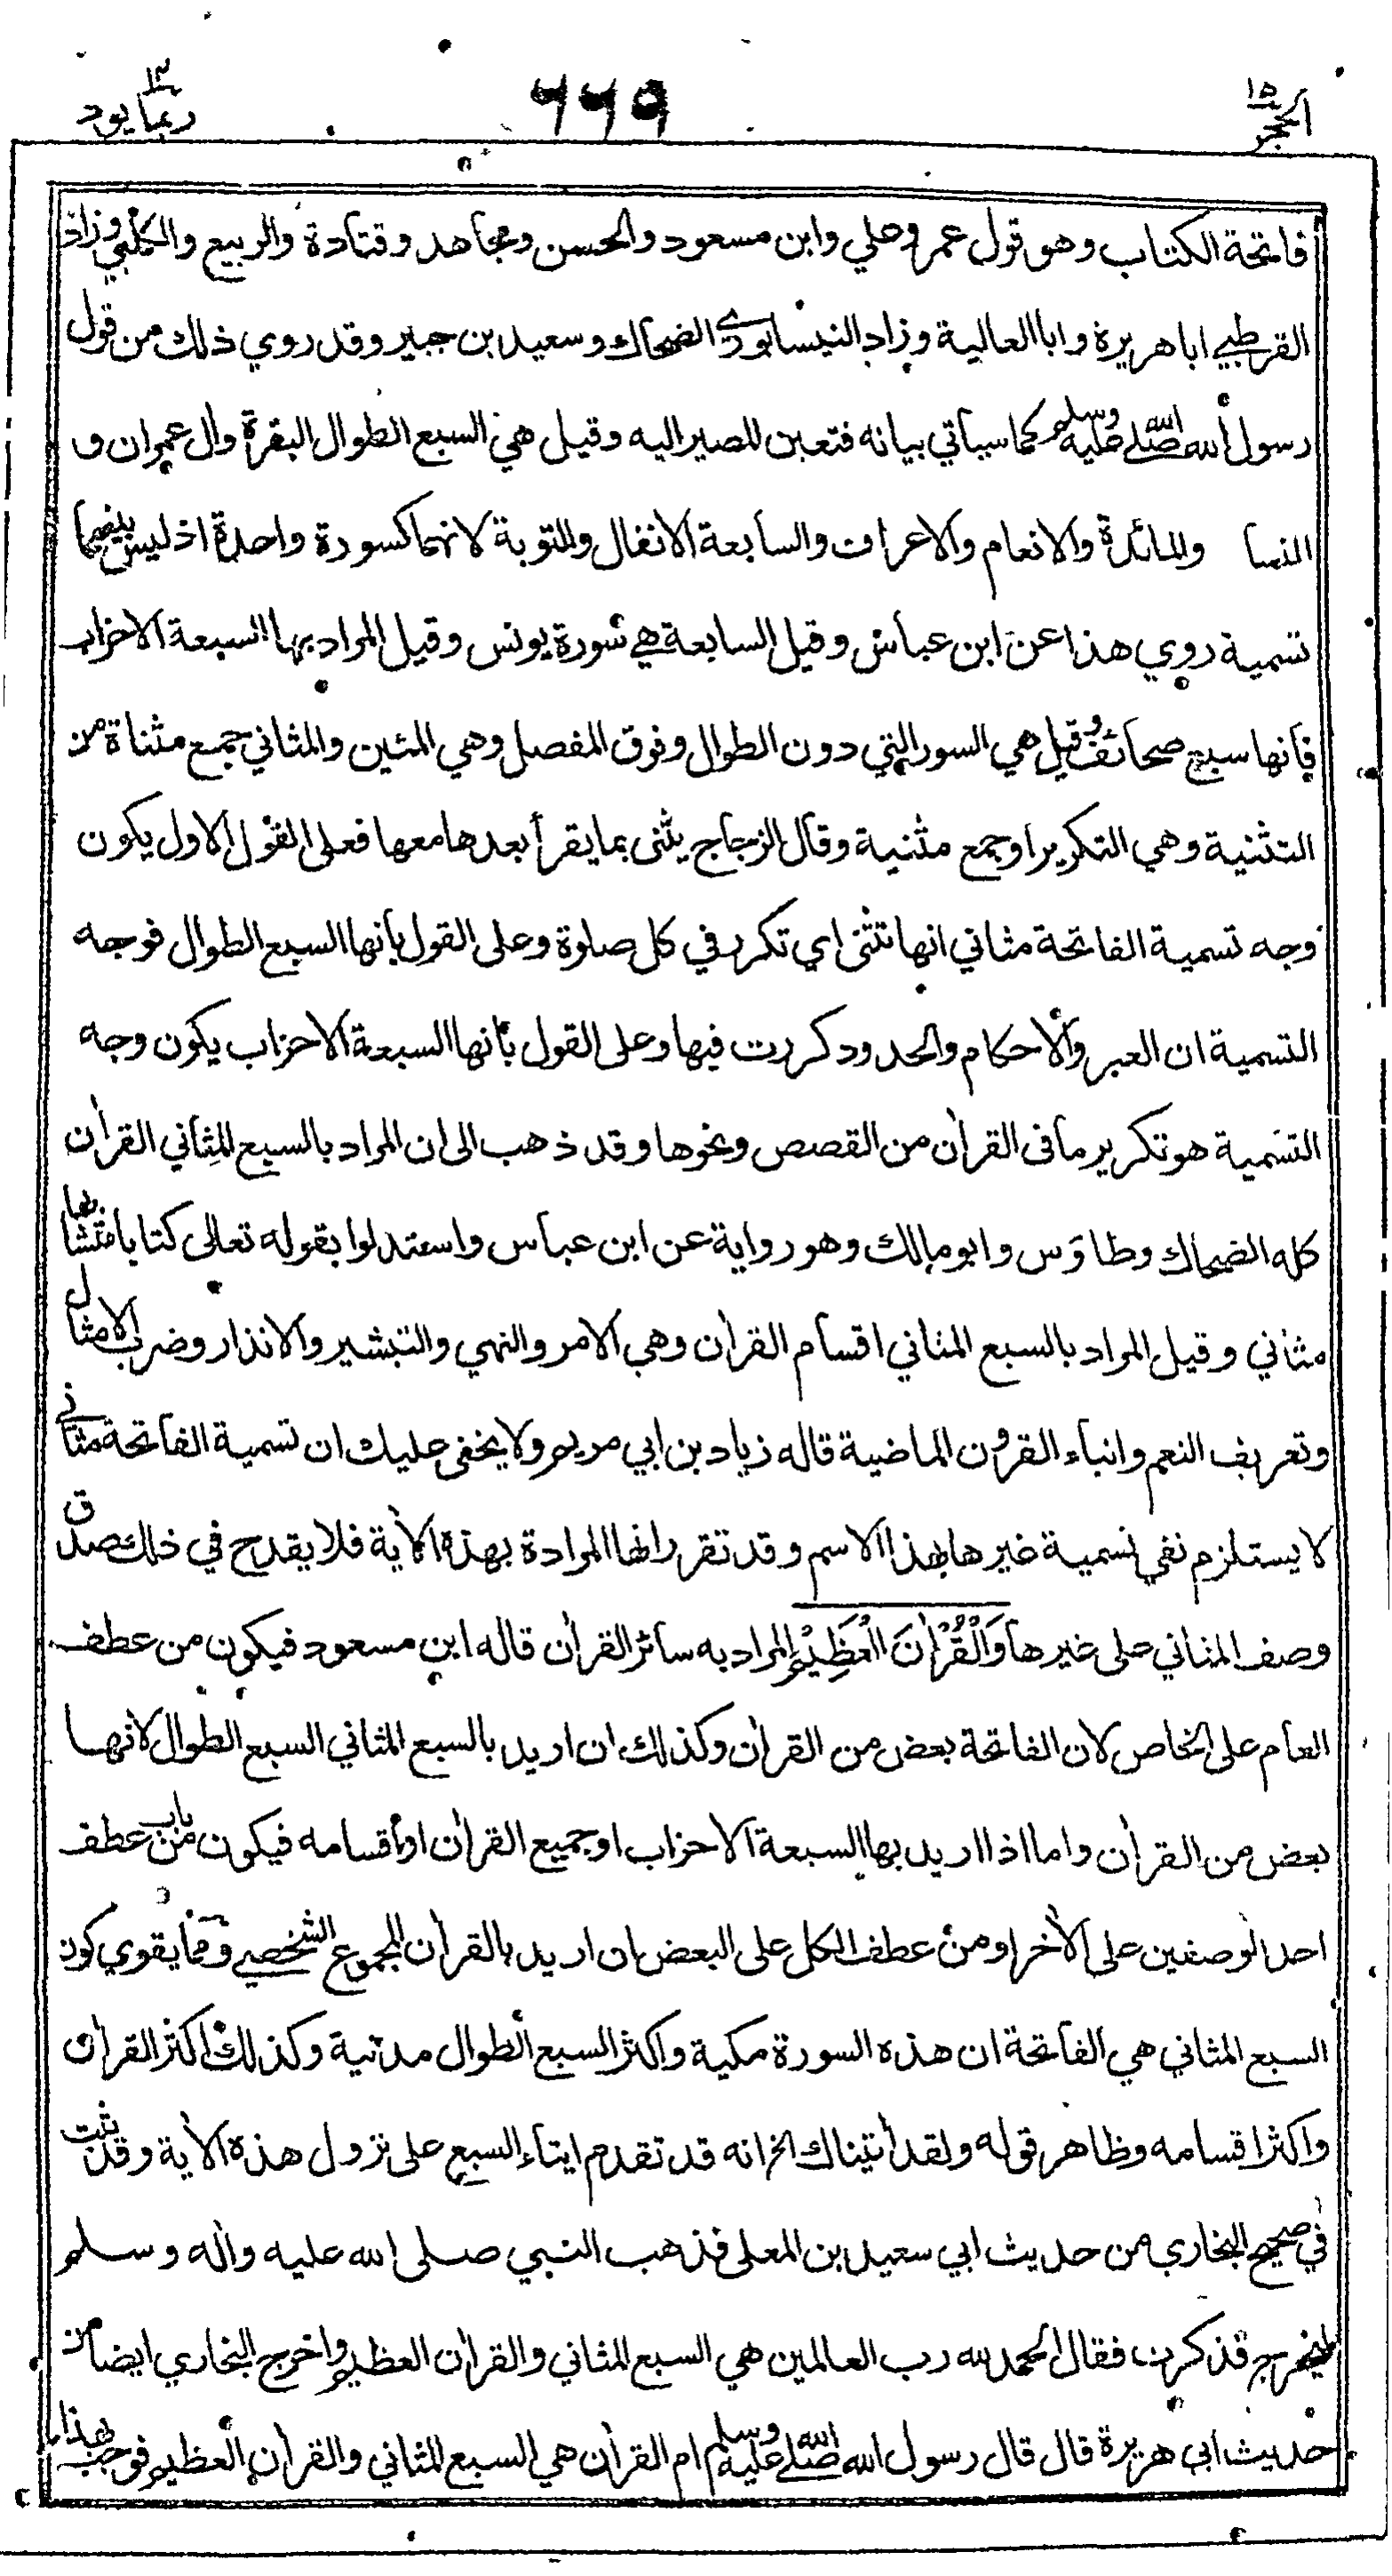 الحجر ١٥
٦٦٩
ربما يود ١٣
فاتحة الكتاب وهو قول عمر وعلي وابن مسعود والحسن ومجاهد وقتادة والربيع والكلبي وزاد
القرطبي ابا هريرة وابا العالية وزاد النيسابوري الضحاك وسعيد بن جبير وقد روي ذلك من قول
رسول الله صلى الله عليه وسلم كما سيأتي بيانه فتعين المصير اليه وقيل هي السبع الطوال البقرة وآل عمران و
النسا والمائدة والانعام والاعراف والسابعة الانفال والتوبة لانهما كسورة واحدة اذ ليس بينهما
تسمية روي هذا عن ابن عباس وقيل السابعة هي سورة يونس وقيل المراد بها السبعة الاحزاب
فإنها سبع صحائف وقيل هي السور التي دون الطوال وفوق المفصل وهي المئين والمثاني جمع مثناة من
التثنية وهي التكرير او جمع مثنية وقال الزجاج يثنى بما يقرأ بعدها معها فعلى القول الاول يكون
وجه تسمية الفاتحة مثاني انها تثنى اي تكرر في كل صلوة وعلى القول بأنها السبع الطوال فوجه
التسمية ان العبر والأحكام والحدود كررت فيها وعلى القول بأنها السبعة الاحزاب يكون وجه
التسمية هو تكرير ما في القرآن من القصص ونحوها وقد ذهب الى ان المراد بالسبع المثاني القرآن
كله الضحاك وطاوس وابو مالك وهو رواية عن ابن عباس واستدلوا بقوله تعالى كتابا متشابها
مثاني وقيل المراد بالسبع المثاني اقسام القرآن وهي الامر والنهي والتبشير والانذار وضرب الامثال
وتعريف النعم وانباء القرون الماضية قاله زياد بن ابي مريم ولا يخفى عليك ان تسمية الفاتحة مثاني
لا يستلزم نفي تسمية غيرها بهذا الاسم وقد تقرر انها المرادة بهذه الآية فلا يقدح في ذلك صدق
وصف المثاني على غيرها وَالْقُرْآنَ الْعَظِيْمَ المراد به سائر القرآن قاله ابن مسعود فيكون من عطف
العام على الخاص لان الفاتحة بعض من القرآن وكذلك ان اريد بالسبع المثاني السبع الطوال لانها
بعض من القرآن واما اذا اريد بها السبعة الاحزاب او جميع القرآن او أقسامه فيكون من باب عطف
احد الوصفين على الآخر او من عطف الكل على البعض ان اريد بالقرآن المجموع الشخصي ومما يقوي كون
السبع المثاني هي الفاتحة ان هذه السورة مكية واكثر السبع الطوال مدنية وكذلك اكثر القرآن
واكثر اقسامه وظاهر قوله ولقد آتيناك الخ انه قد تقدم ايتاء السبع على نزول هذه الآية وقد ثبت
في صحيح البخاري من حديث ابي سعيد بن المعلى فذهب النبي صلى الله عليه وآله وسلم
ليخرج فذكرت فقال الحمد لله رب العالمين هي السبع المثاني والقرآن العظيم واخرج البخاري ايضا من
حديث ابي هريرة قال قال رسول الله صلى الله عليه وسلم ام القرآن هي السبع المثاني والقرآن العظيم فوجب بهذا